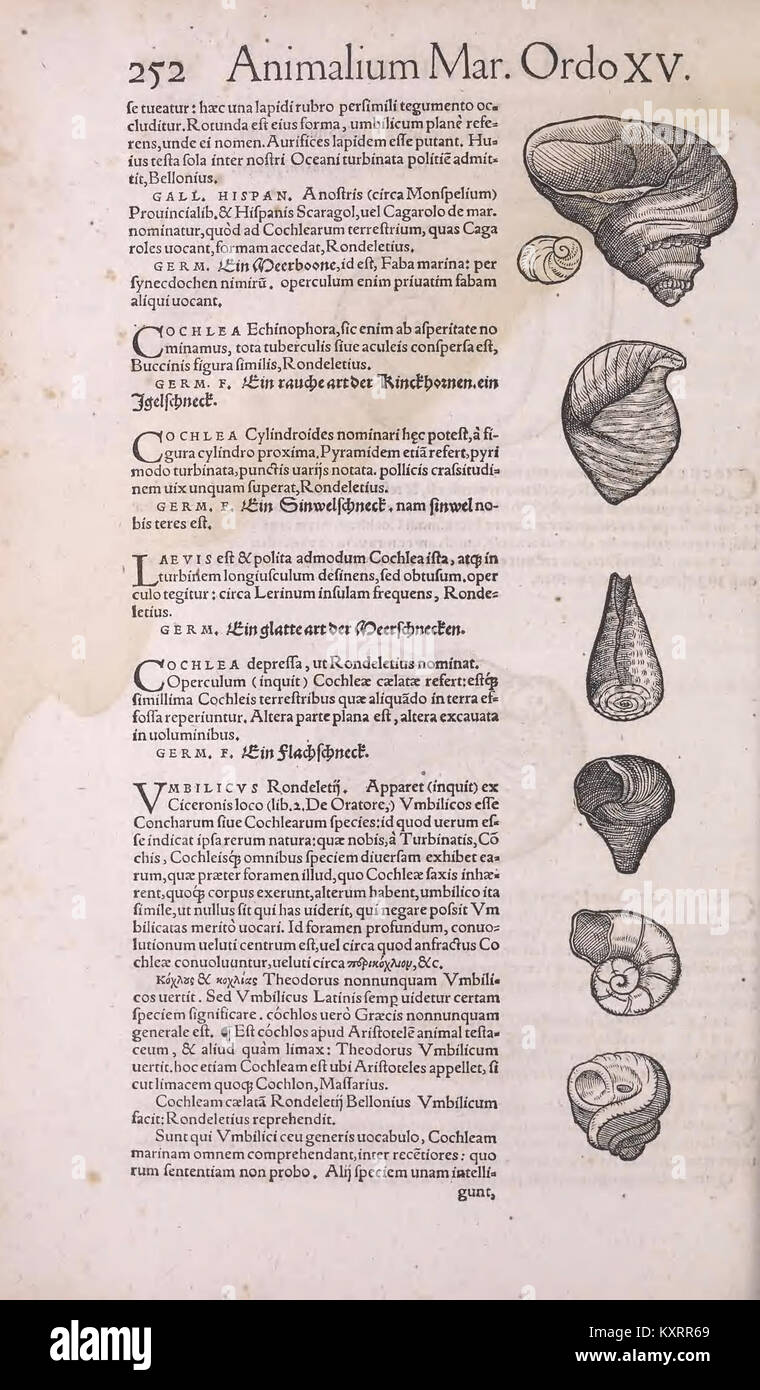 252 Animalium Mar. Ordo XV.
ſe tueatur: hæc una lapidi rubro perſimili tegumento oc-
cluditur. Rotunda eſt eius forma, umbilicum planè refe-
rens, unde ei nomen. Aurifices lapidem eſſe putant. Hu-
ius teſta ſola inter noſtri Oceani turbinata politiē admit-
tit, Bellonius.
GALL. HISPAN. A noſtris (circa Monſpelium)
Prouincialib. & Hiſpanis Scaragol, uel Cagarolo de mar.
nominatur, quòd ad Cochlearum terreſtrium, quas Caga
roles uocant, formam accedat, Rondeletius.
GERM. Ein Meerboone, id eſt, Faba marina: per
ſynecdochen nimirū. operculum enim priuatim fabam
aliqui uocant.
COCHLEA Echinophora, ſic enim ab aſperitate no
minamus, tota tuberculis ſiue aculeis conſperſa eſt,
Buccinis figura ſimilis, Rondeletius.
GERM. F. Ein rauche art der Kinckhornen. ein
Igelſchneck.
COCHLEA Cylindroides nominari hęc poteſt, à fi-
gura cylindro proxima. Pyramidem etiā refert, pyri
modo turbinata, punctis uarijs notata. pollicis craſsitudi-
nem uix unquam ſuperat, Rondeletius.
GERM. F. Ein Sinwelſchneck. nam ſinwel no-
bis teres eſt.
LAEVIS eſt & polita admodum Cochlea iſta, atq; in
turbinem longiuſculum deſinens, ſed obtuſum. oper
culo tegitur: circa Lerinum inſulam frequens, Ronde-
letius.
GERM. Ein glatte art der Meerſchnecken.
COCHLEA depreſſa, ut Rondeletius nominat.
Operculum (inquit) Cochleæ cælatæ refert: eſtq;
ſimillima Cochleis terreſtribus quæ aliquādo in terra ef-
foſſa reperiuntur. Altera parte plana eſt, altera excauata
in uoluminibus.
GERM. F. Ein Flachſchneck.
VMBILICVS Rondeletij. Apparet (inquit) ex
Ciceronis loco (lib. 2. De Oratore,) Vmbilicos eſſe
Concharum ſiue Cochlearum ſpecies: id quod uerum eſ-
ſe indicat ipſa rerum natura: quæ nobis, à Turbinatis, Cō
chis, Cochleisq; omnibus ſpeciem diuerſam exhibet ea-
rum, quæ præter foramen illud, quo Cochleæ ſaxis inhæ-
rent, quoq; corpus exerunt, alterum habent, umbilico ita
ſimile, ut nullus ſit qui has uiderit, qui negare poſsit Vm
bilicatas meritò uocari. Id foramen profundum, conuo-
lutionum ueluti centrum eſt, uel circa quod anfractus Co
chleæ conuoluuntur, ueluti circa &c.
Κόχλους & κοχλίας Theodorus nonnunquam Vmbili-
cos uertit. Sed Vmbilicus Latinis ſemp uidetur certam
ſpeciem ſignificare. cóchlos uerò Græcis nonnunquam
generale eſt. ¶ Eſt cóchlos apud Ariſtotelē animal teſta-
ceum, & aliud quàm limax: Theodorus Vmbilicum
uertit. hoc etiam Cochleam eſt ubi Ariſtoteles appellet, ſi
cut limacem quoq; Cochlon, Maſſarius.
Cochleam cælatā Rondeletij Bellonius Vmbilicum
facit: Rondeletius reprehendit.
Sunt qui Vmbilici ceu generis uocabulo, Cochleam
marinam omnem comprehendant, inter recētiores: quo
rum ſententiam non probo. Alij ſpeciem unam intelli-
gunt,
alamy
alamy
Image ID: KXRR69
www.alamy.com